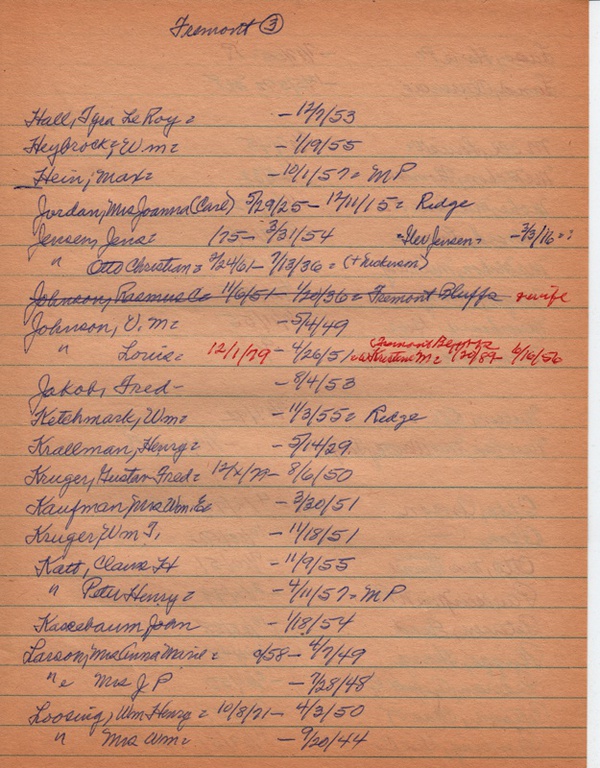 Fremont ③
Hall, Tyra LeRoy = - 12/7/53
Heybrock, Wm = - 1/19/55
Hein, Max = - 10/1/57 = MP
Jordan, Mrs Joanna (Carl) 5/29/25 - 12/11/15 = Ridge
Jensen, Jens = 1/75 - 3/31/54 = Jensen = - 3/3/16 =
" Otto Christian = 9/24/61 - 7/13/36 = (+ Nickerson)
Johnson, Rasmus C = 11/6/51 - 1/20/36 = Fremont Bluffs + wife
Johnson, V. M = - 5/4/49
" Louis = 12/1/79 - 4/26/51 Fremont = Kristine M = 1/20/89 - 6/16/56
Jakob, Fred - - 8/4/53
Ketchmark, Wm = - 11/3/55 = Ridge
Krallman, Henry = - 5/14/29
Kruger, Gustav Fred = 12/x/79 - 8/6/50
Kaufman, Mrs Wm. E = - 3/20/51
Kruger, Wm F, - 11/18/51
Katt, Claus H - 11/9/55
" Peter Henry = - 4/11/57 = MP
Kassebaum John - 1/18/54
Larson, Mrs Anna Marie = 9/58 - 4/7/49
" = Mrs J P - 7/28/48
Loosing, Wm Henry = 10/8/71 - 4/3/50
" Mrs Wm = - 9/20/44